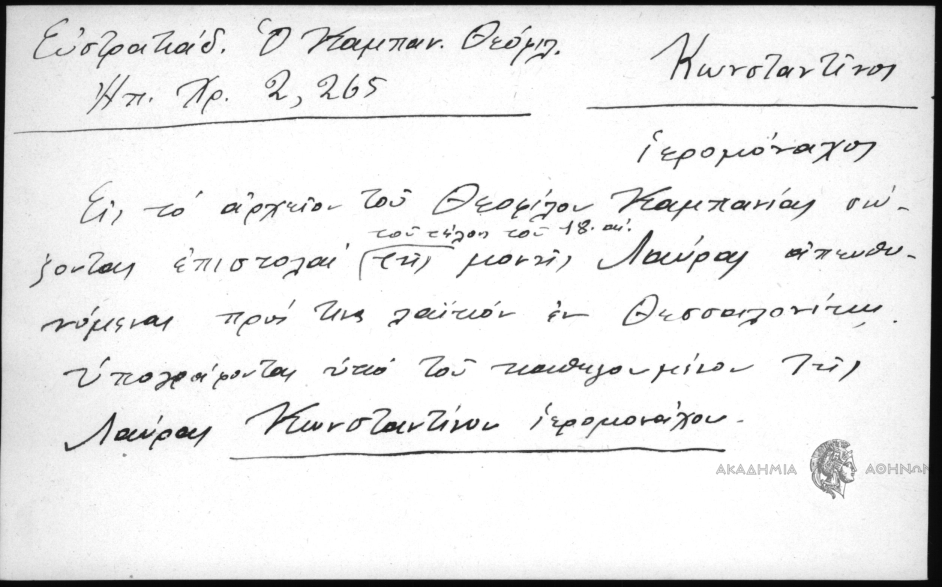 Εὐστρατιάδ. Ὁ Καμπαν. Θεόφιλ.
Ἠπ. Χρ. 2, 265
Κωνσταντῖνος
ἱερομόναχος
Εἰς τὸ ἀρχεῖον τοῦ Θεοφίλου Καμπανίας σώ-
τοῦ τέλους τοῦ 18. αἰ.
ζονται ἐπιστολαὶ (τῆς μονῆς Λαύρας ἀπευθυ-
νόμεναι πρός τινα λαϊκόν ἐν Θεσσαλονίκῃ.
Ὑπογράφονται ὑπὸ τοῦ καθηγουμένου τῆς
Λαύρας Κωνσταντίνου ἱερομονάχου.
ΑΚΑΔΗΜΙΑ ΑΘΗΝΩΝ